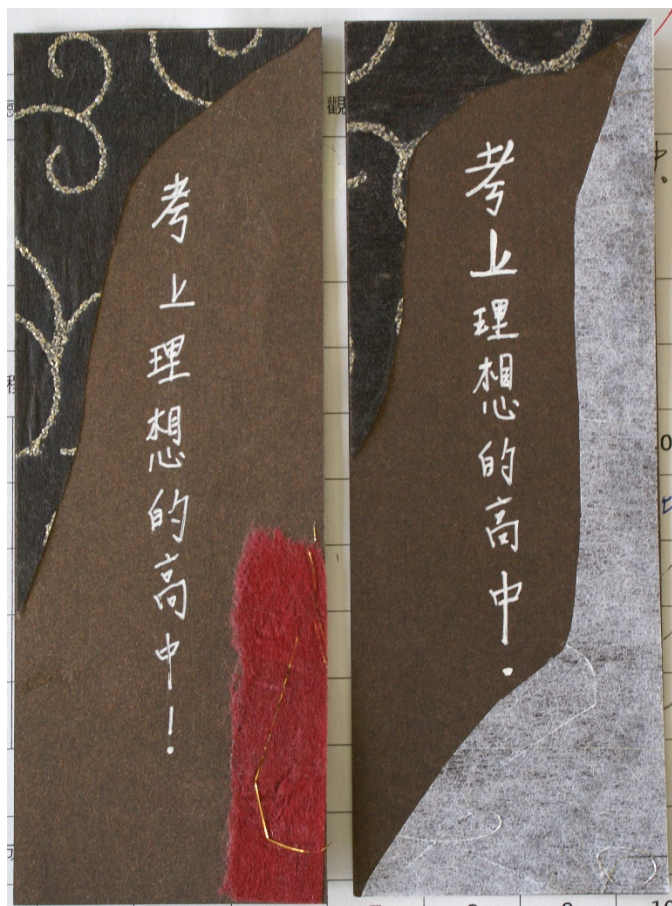 考上理想的高中！
考上理想的高中.
觀
程
中。